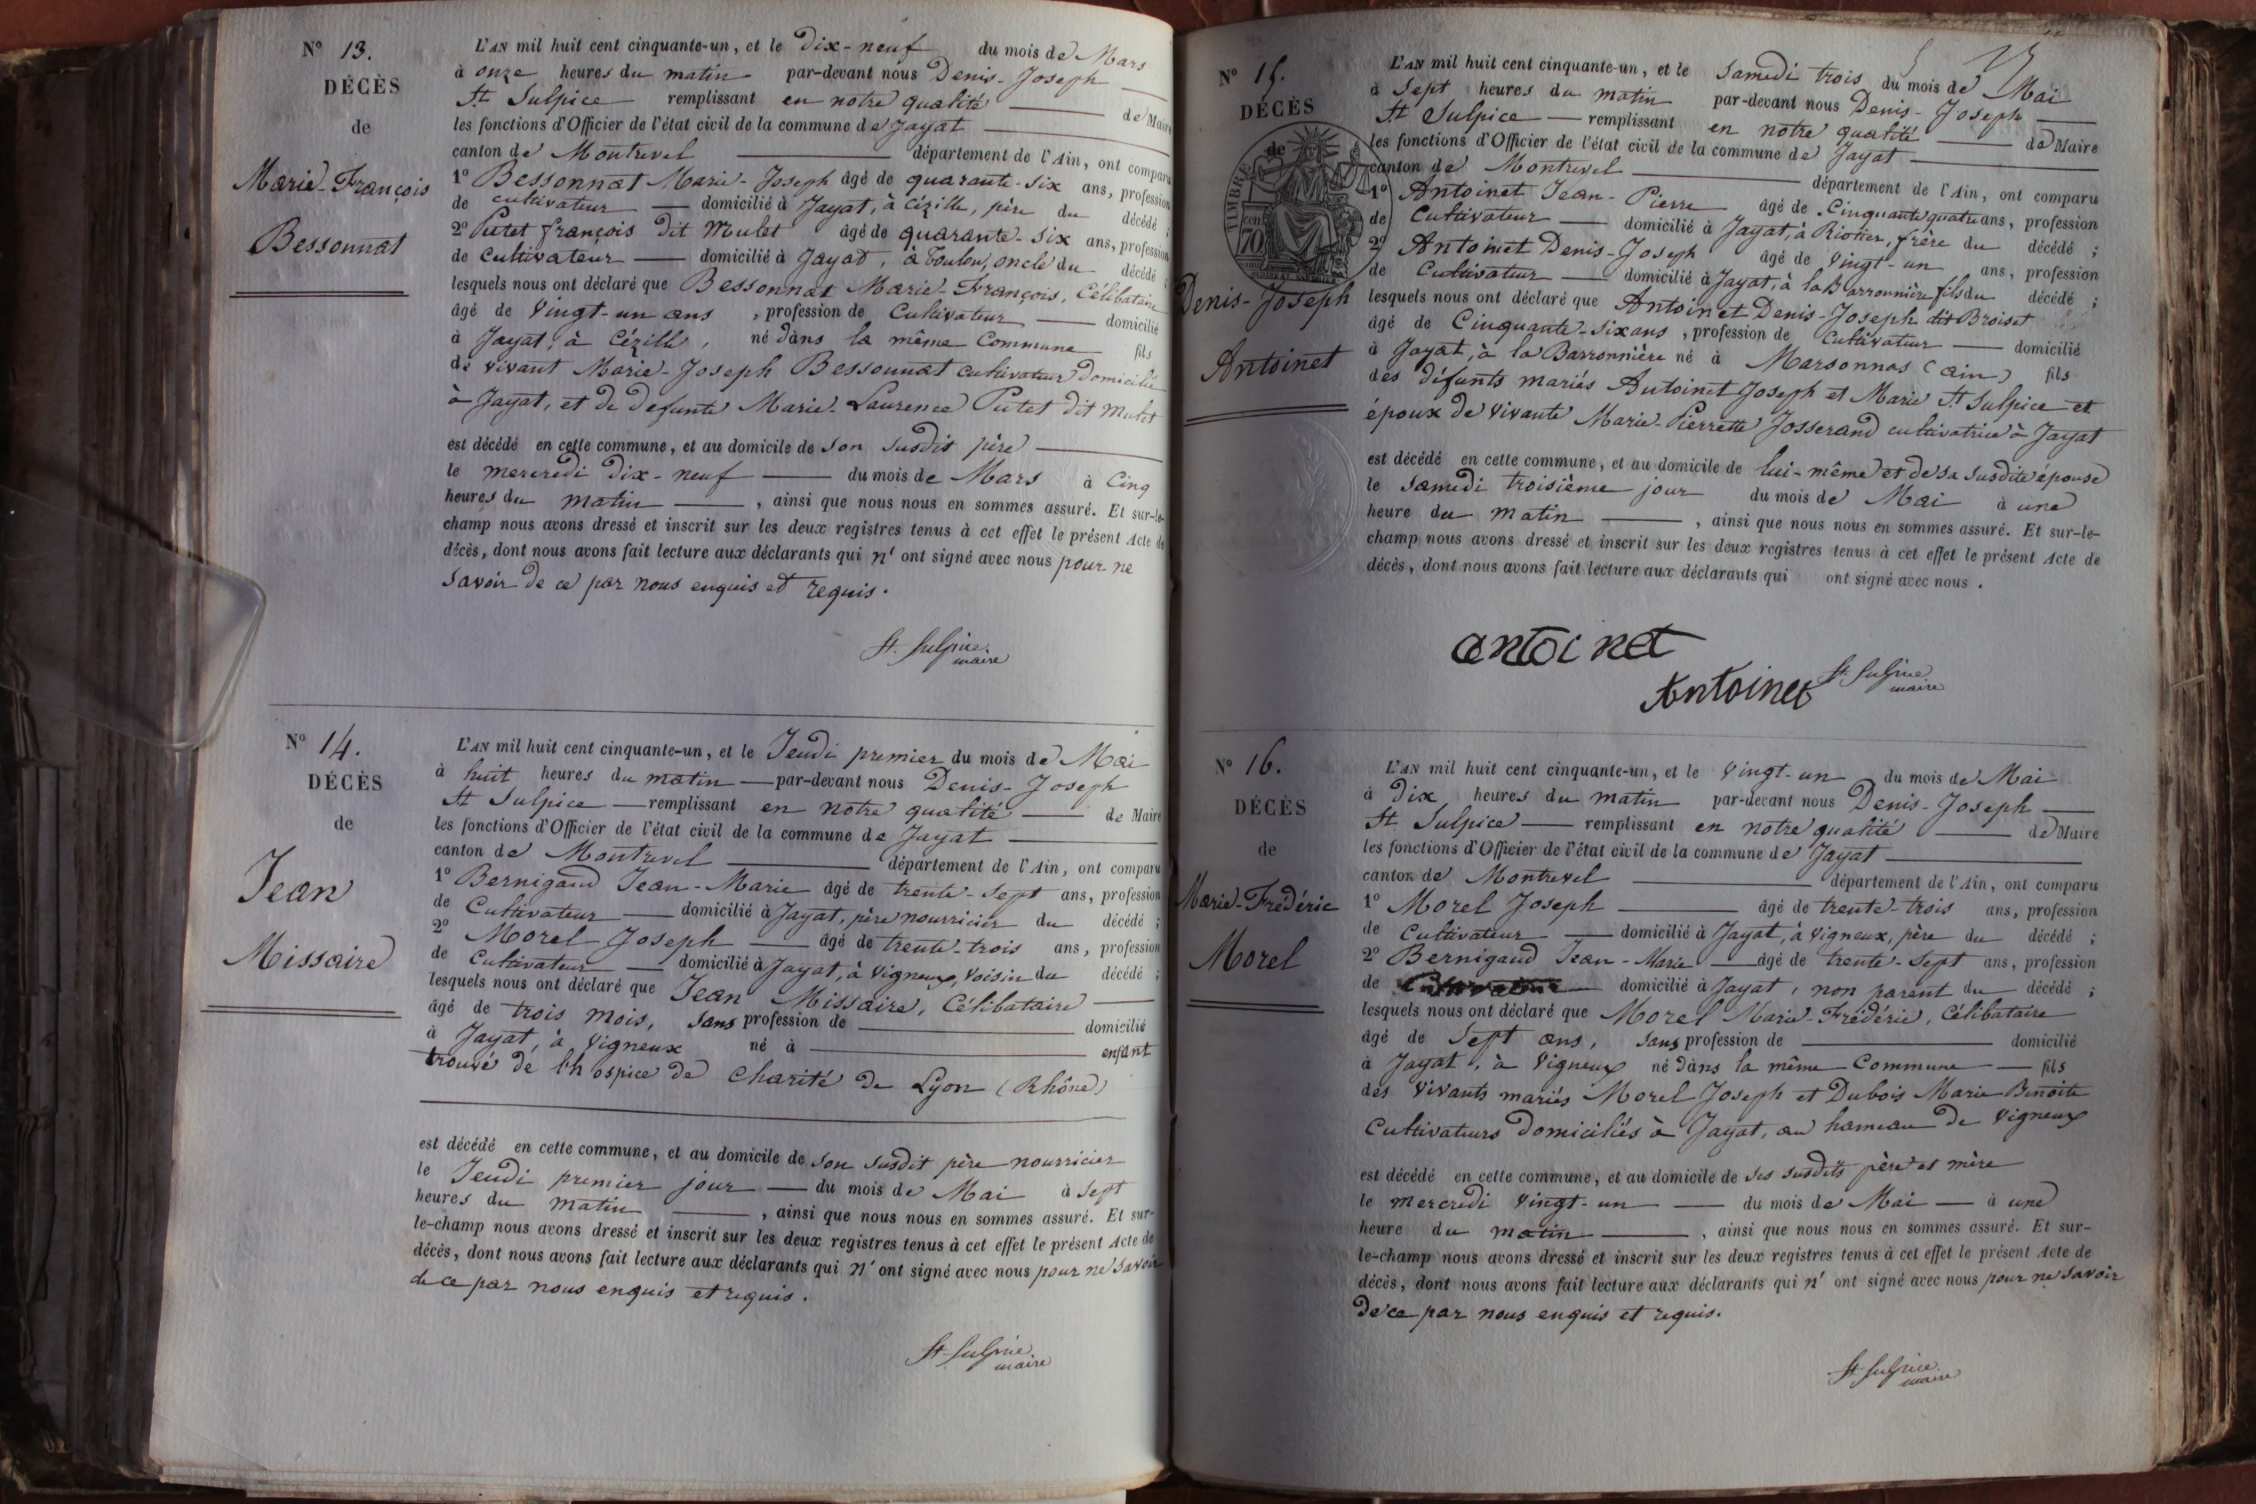 N° 13.
DÉCÈS
de
Marie-François
Bessonnat
L'AN mil huit cent cinquante-un, et le Dix-neuf du mois de Mars
à onze heures du matin par-devant nous Denis-Joseph
St Sulpice remplissant en notre qualité de Maire
les fonctions d'Officier de l'état civil de la commune de Jayat
canton de Montrevel département de l'Ain, ont comparu
1° Bessonnat Marie-Joseph âgé de quarante-six ans, profession
de cultivateur domicilié à Jayat, à Cézille, père du décédé ;
2° Putet françois dit Mulet âgé de quarante-six ans, profession
de Cultivateur domicilié à Jayat, à Toulou, oncle du décédé ;
lesquels nous ont déclaré que Bessonnat Marie-François, Célibataire
âgé de Vingt-un ans, profession de Cultivateur domicilié
à Jayat, à Cézille, né dans la même Commune fils
de vivant Marie-Joseph Bessonnat cultivateur domicilié
à Jayat, et de defunte Marie-Laurence Putet dit Mulet
est décédé en cette commune, et au domicile de son susdit père
le mercredi dix-neuf du mois de Mars à Cinq
heures du matin, ainsi que nous nous en sommes assuré. Et sur-le-
champ nous avons dressé et inscrit sur les deux registres tenus à cet effet le présent Acte de
décès, dont nous avons fait lecture aux déclarants qui n' ont signé avec nous pour ne
savoir de ce par nous enquis et requis.
St. Sulpice
maire
N° 14.
DÉCÈS
de
Jean
Missaire
L'AN mil huit cent cinquante-un, et le Jeudi premier du mois de Mai
à huit heures du matin par-devant nous Denis-Joseph
St Sulpice remplissant en notre qualité de Maire
les fonctions d'Officier de l'état civil de la commune de Jayat
canton de Montrevel département de l'Ain, ont comparu
1° Bernigaud Jean-Marie âgé de trente-sept ans, profession
de Cultivateur domicilié à Jayat, père nourricier du décédé ;
2° Morel Joseph âgé de trente-trois ans, profession
de Cultivateur domicilié à Jayat, à Vigneux, Voisin du décédé ;
lesquels nous ont déclaré que Jean Missaire, Célibataire
âgé de trois mois, sans profession de domicilié
à Jayat, à Vigneux né à enfant
trouvé de l'hospice de Charité de Lyon (Rhône)
est décédé en cette commune, et au domicile de son susdit père nourricier
le Jeudi premier jour du mois de Mai à Sept
heures du matin, ainsi que nous nous en sommes assuré. Et sur-
le-champ nous avons dressé et inscrit sur les deux registres tenus à cet effet le présent Acte de
décès, dont nous avons fait lecture aux déclarants qui n' ont signé avec nous pour ne savoir
de ce par nous enquis et requis.
St. Sulpice
maire
N° 15.
DÉCÈS
de
TIMBRE
70
Denis-Joseph
Antoinet
L'AN mil huit cent cinquante-un, et le Samedi trois du mois de Mai
à Sept heures du matin par-devant nous Denis-Joseph
St Sulpice remplissant en notre qualité de Maire
les fonctions d'Officier de l'état civil de la commune de Jayat
canton de Montrevel département de l'Ain, ont comparu
1° Antoinet Jean-Pierre âgé de Cinquante quatre ans, profession
de Cultivateur domicilié à Jayat, à Riottier, frère du décédé ;
2° Antoinet Denis-Joseph âgé de Vingt-un ans, profession
de Cultivateur domicilié à Jayat, à la Barronnière fils du décédé ;
lesquels nous ont déclaré que Antoinet Denis-Joseph dit Broiset
âgé de Cinquante-six ans, profession de Cultivateur domicilié
à Jayat, à la Barronnière né à Marsonnas (ain) fils
des défunts mariés Antoinet Joseph et Marie St Sulpice et
époux de vivante Marie-Pierrette Josserand cultivatrice à Jayat
est décédé en cette commune, et au domicile de lui-même et de sa susdite épouse
le samedi troisième jour du mois de Mai à une
heure du matin, ainsi que nous nous en sommes assuré. Et sur-le-
champ nous avons dressé et inscrit sur les deux registres tenus à cet effet le présent Acte de
décès, dont nous avons fait lecture aux déclarants qui ont signé avec nous.
antoinet
Antoinet
St. Sulpice
maire
N° 16.
DÉCÈS
de
Marie-Frédéric
Morel
L'AN mil huit cent cinquante-un, et le Vingt-un du mois de Mai
à Dix heures du matin par-devant nous Denis-Joseph
St Sulpice remplissant en notre qualité de Maire
les fonctions d'Officier de l'état civil de la commune de Jayat
canton de Montrevel département de l'Ain, ont comparu
1° Morel Joseph âgé de trente-trois ans, profession
de Cultivateur domicilié à Jayat, à Vigneux, père du décédé ;
2° Bernigaud Jean-Marie âgé de trente-sept ans, profession
de Cultivateur domicilié à Jayat, non parent du décédé ;
lesquels nous ont déclaré que Morel Marie-Frédéric, Célibataire
âgé de Sept ans, sans profession de domicilié
à Jayat, à Vigneux né dans la même Commune fils
des vivants mariés Morel Joseph et Dubois Marie Benoite
Cultivateurs domiciliés à Jayat, au hameau de Vigneux
est décédé en cette commune, et au domicile de ses susdits père et mère
le mercredi Vingt-un du mois de Mai à une
heure du matin, ainsi que nous nous en sommes assuré. Et sur-
le-champ nous avons dressé et inscrit sur les deux registres tenus à cet effet le présent Acte de
décès, dont nous avons fait lecture aux déclarants qui n' ont signé avec nous pour ne savoir
de ce par nous enquis et requis.
St Sulpice
maire